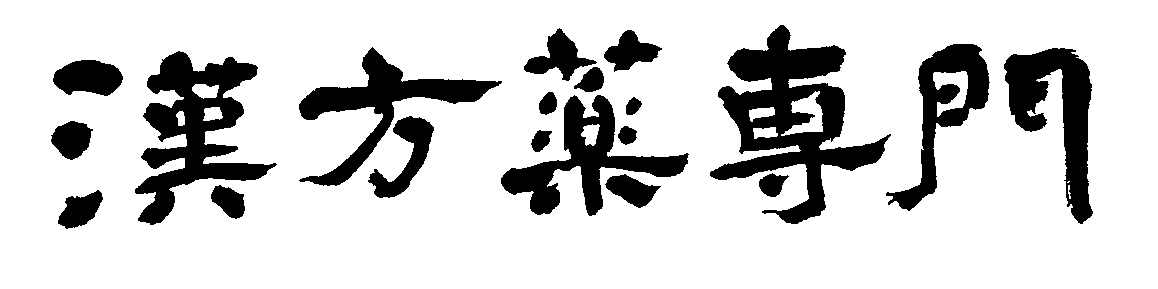 漢方薬専門